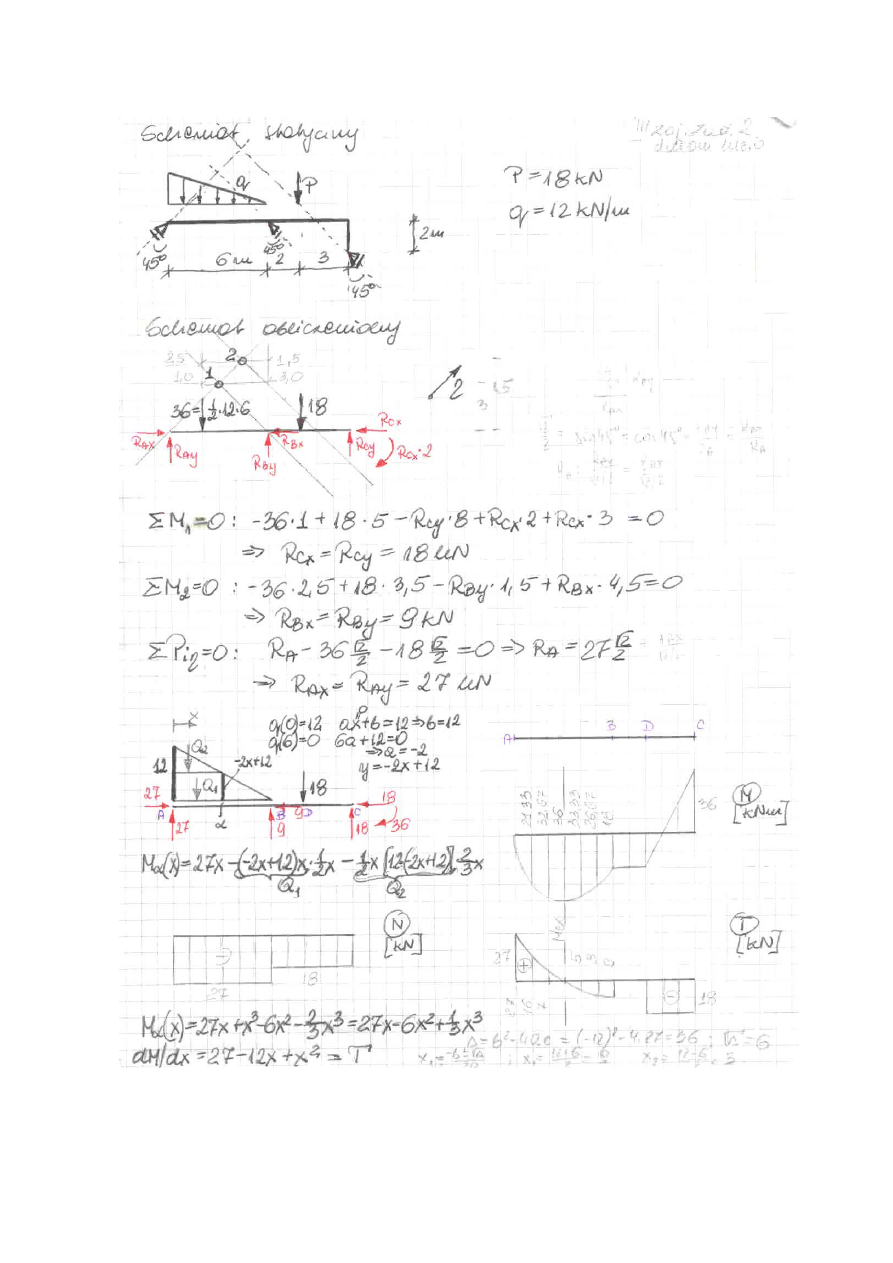 Schemat statyczny
III zaj. zad. 2
q
P
P=18kN
q=12kN/m
2m
45° 6m 45° 2 3
45°
Schemat obliczeniowy
2,5 2 1,5
1,0 1 3,0
2
36=½·12·6 18 RCx
RAx RAy RBx RCy RCx·2
RBy
ΣM₁=0: -36·1+18·5-RCy·8+RCx·2+RCx·3=0
=> RCx=RCy=18kN
ΣM₂=0: -36·2,5+18·3,5-RBy·1,5+RBx·4,5=0
=> RBx=RBy=9kN
ΣPi2=0: RA-36√2/2-18√2/2=0=>RA=27√2/2
=> RAx=RAy=27kN
x q(0)=12 ax+b=12=>b=12
0
q(6)=0 6a+12=0
=>a=-2
y=-2x+12
Q2
12 -2x+12
Q1 18
27 18
A B 9 D C
27 α 9 18 36
A B D C
21,33
32,67
36
33,33
26,67
18
36
M
[kNm]
Mα(x)=27x-(-2x+12)x·½x-½x[12-(-2x+12)]·⅔x
Q1 Q2
N
[kN]
-
27
18
Max
T
[kN]
27
+
27
16
7
-
18
Mα(x)=27x+x³-6x²-⅔x³=27x-6x²+⅓x³
dM/dx=27-12x+x²=T
Δ=b²-4ac=(-12)²-4·27=36; √Δ=6